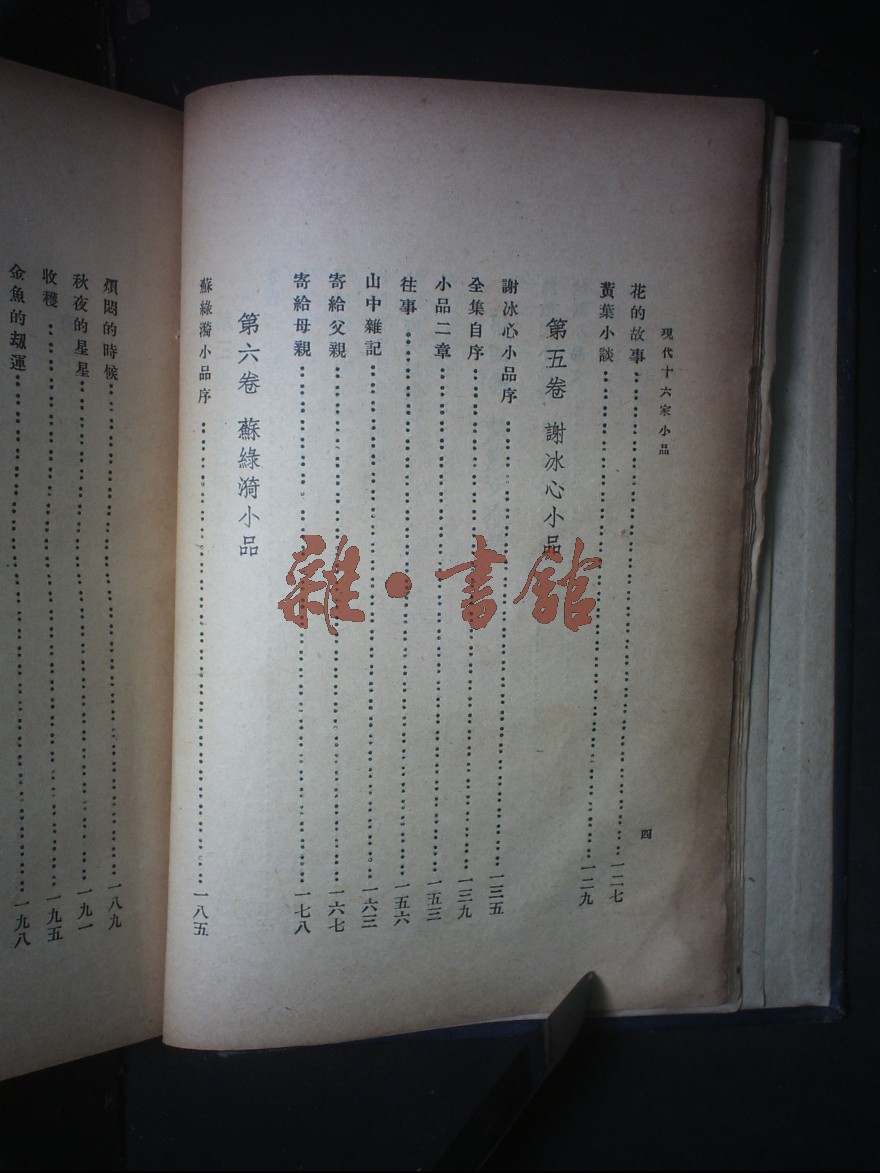 現代十六家小品
四
花的故事……一二七
黃葉小談……一二九
第五卷 謝冰心小品
謝冰心小品序……一三五
全集自序……一三九
小品二章……一五三
往事……一五六
山中雜記……一六三
寄給父親……一六七
寄給母親……一七八
第六卷 蘇綠漪小品
蘇綠漪小品序……一八五
煩悶的時候……一八九
秋夜的星星……一九一
收穫……一九五
金魚的劫運……一九八
雜·書館